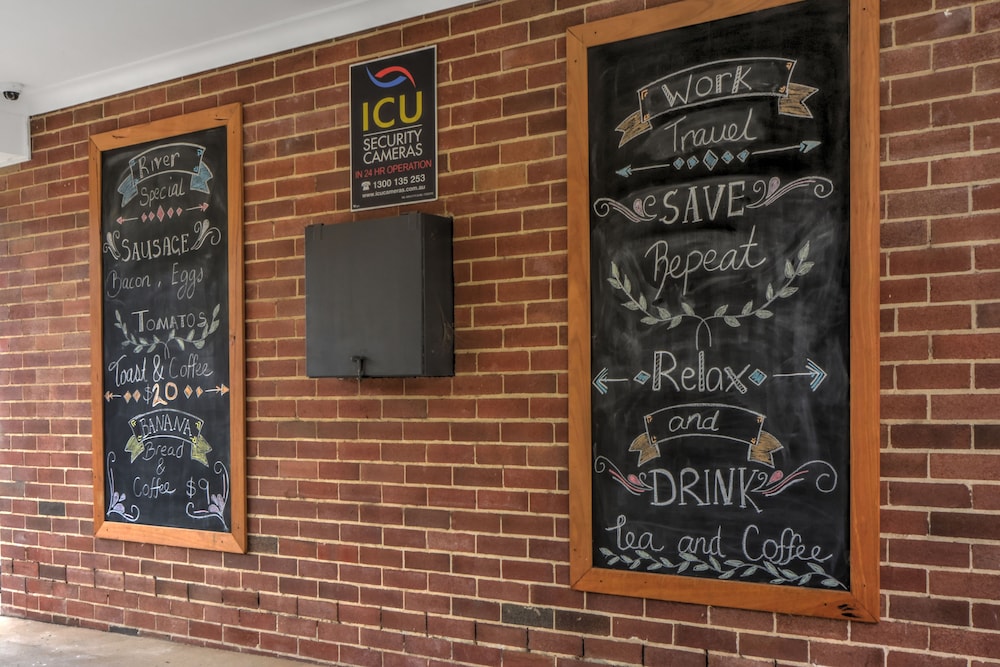 River
Special
SAUSAGE
Bacon, Eggs
TOMATOS
Toast & Coffee
$20
BANANA
Bread
&
Coffee $9
ICU
SECURITY
CAMERAS
IN 24 HR OPERATION
1300 135 253
www.icucameras.com.au
Work
Travel
SAVE
Repeat
Relax
and
DRINK
Tea and Coffee